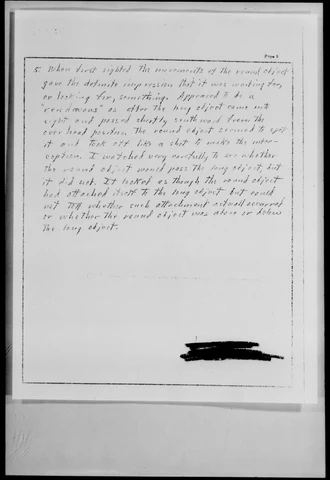 Page 5
5. When first sighted the movements of the round object
gave the definite impression that it was waiting for,
or looking for, something. Appeared to be a
"rendezvous" as after the long object came into
sight and passed shortly southward from the
overhead position the round object seemed to spot
it and took off like a shot to make the inter-
ception. I watched very carefully to see whether
the round object would pass the long object, but
it did not. It looked as though the round object
had attached itself to the long object but could
not tell whether such attachment actually occurred
or whether the round object was above or below
the long object.